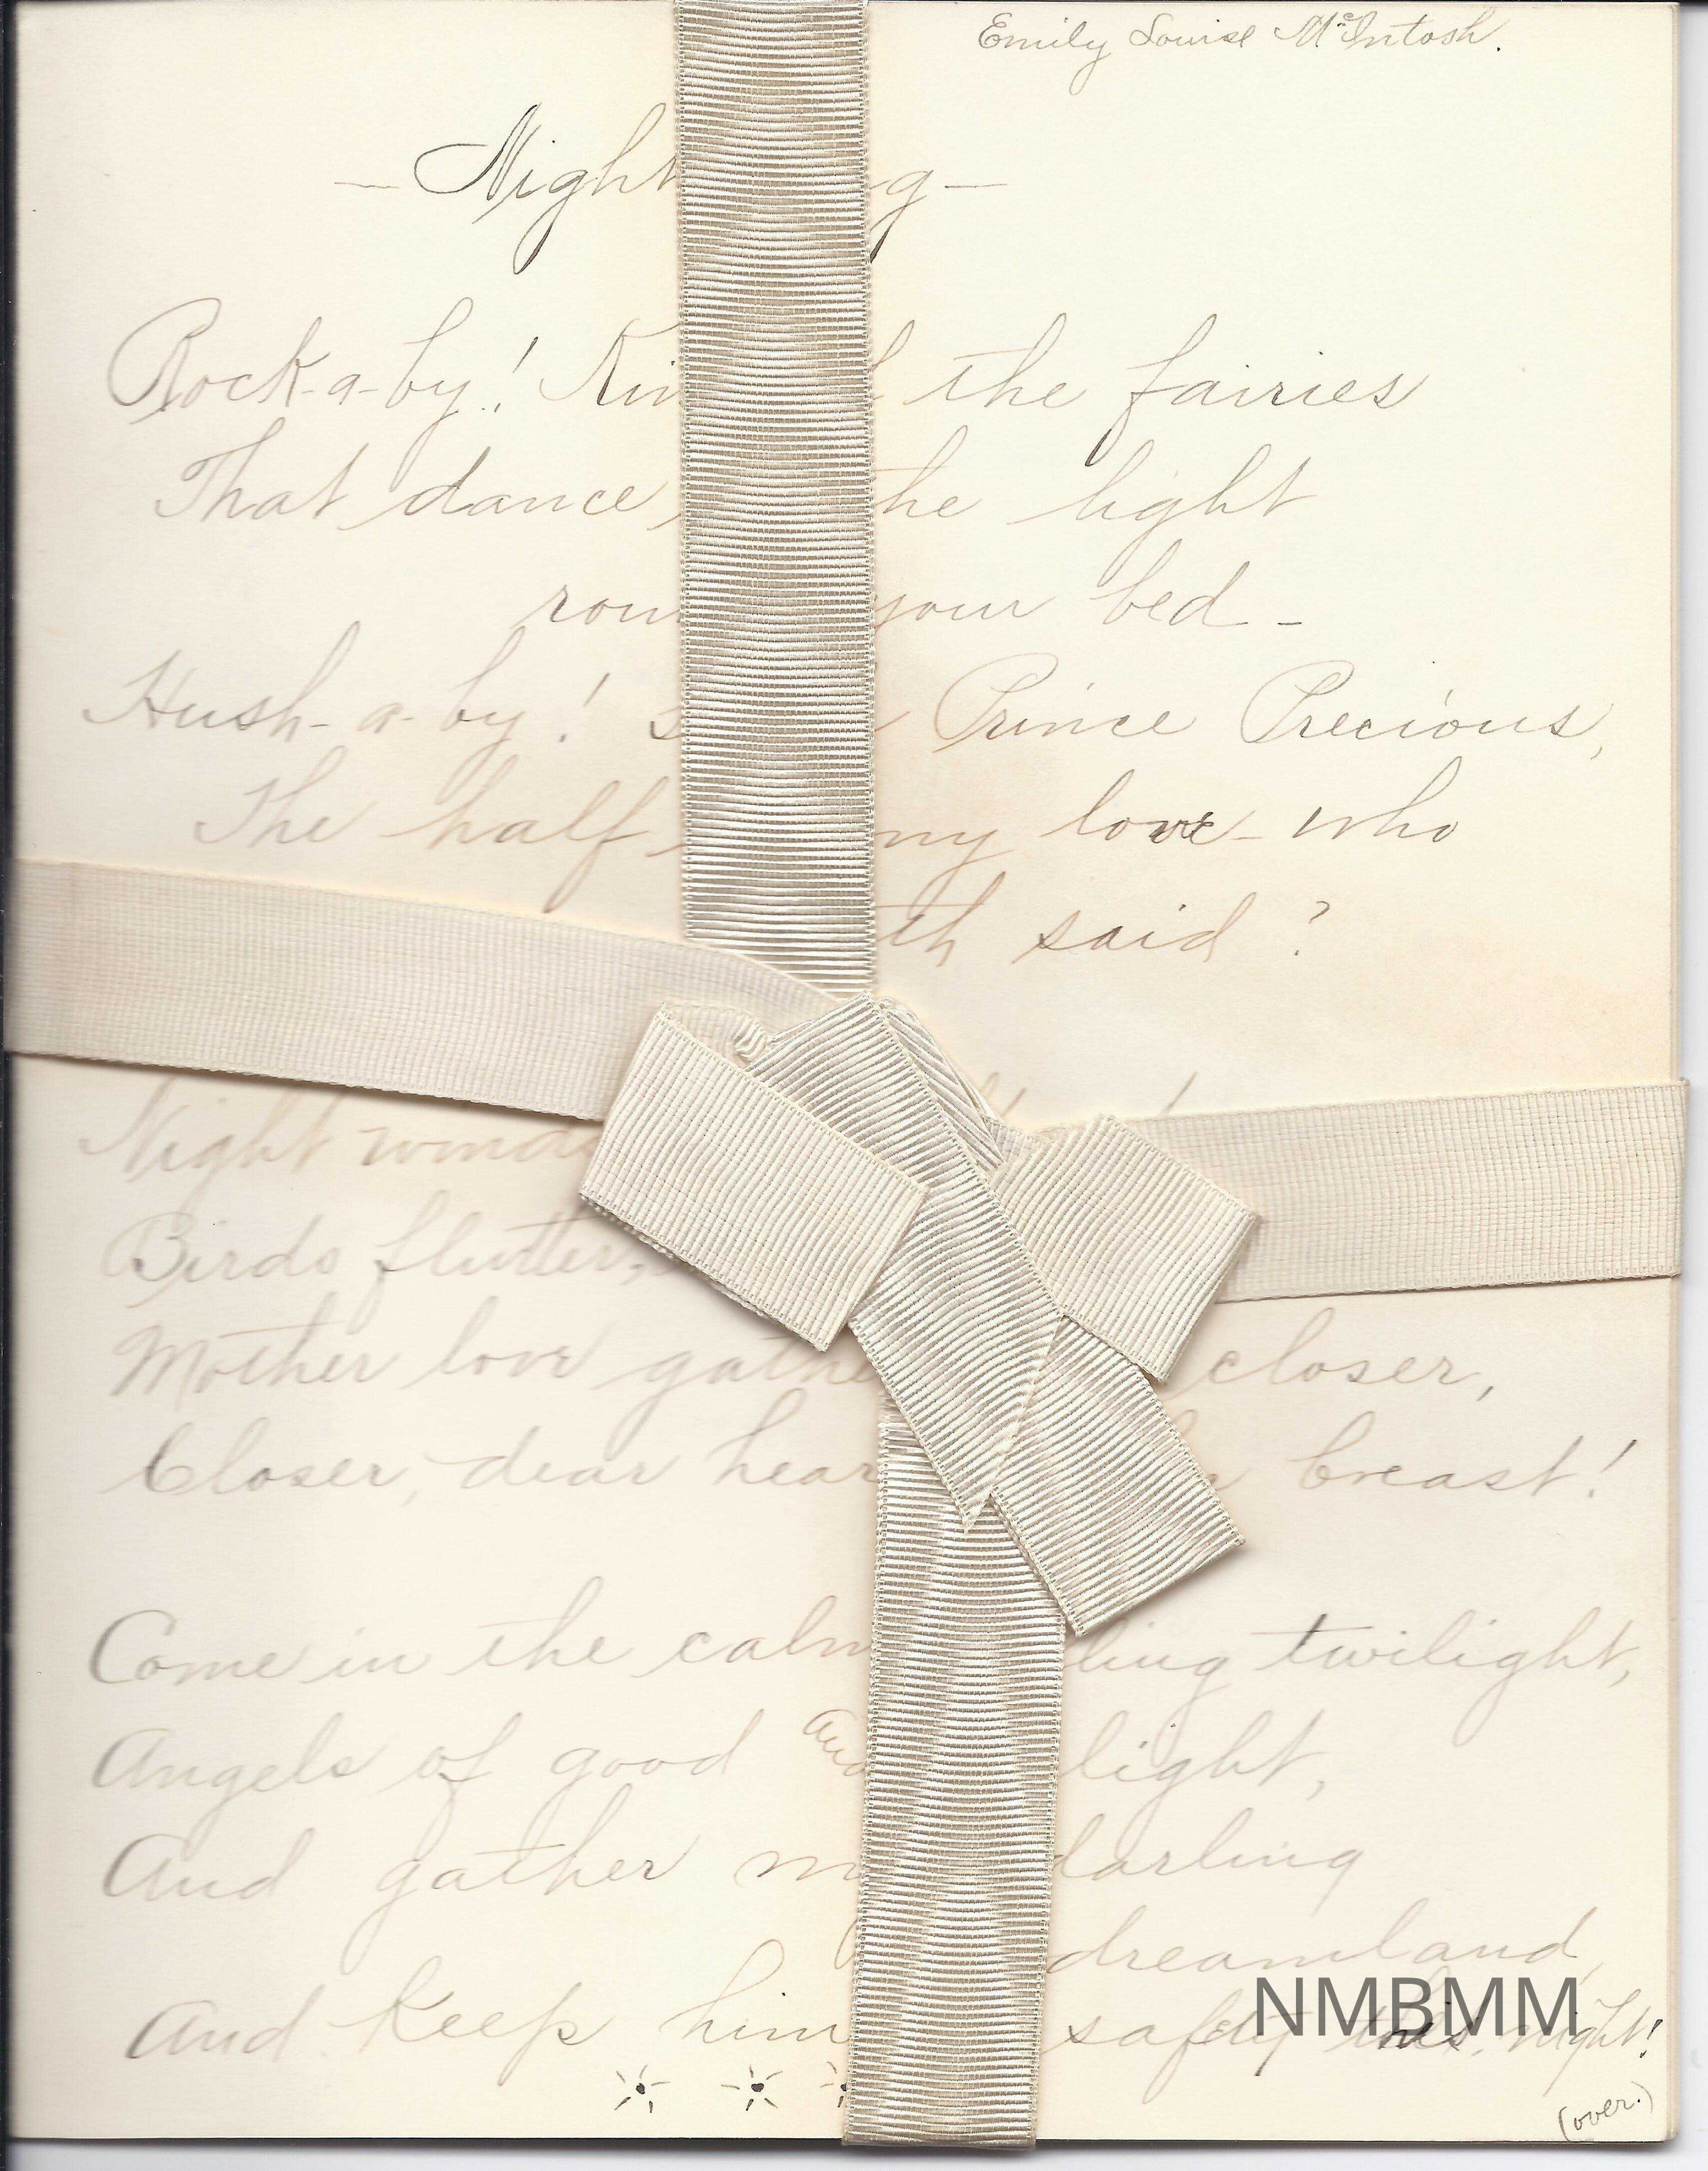 Emily Louise McIntosh.
— Nigh g —
Rock-a-by! Kin the fairies
That dance the light
roun your bed -
Hush-a-by! Prince Precious,
The half my love who
th said?
Night winds
Birds flutter,
Mother love gathe closer,
Closer, dear hear breast!
Come in the calm ling twilight,
Angels of good and light,
And gather m darling
dreamland
And keep him safely this night!
(over.)
NMBMM